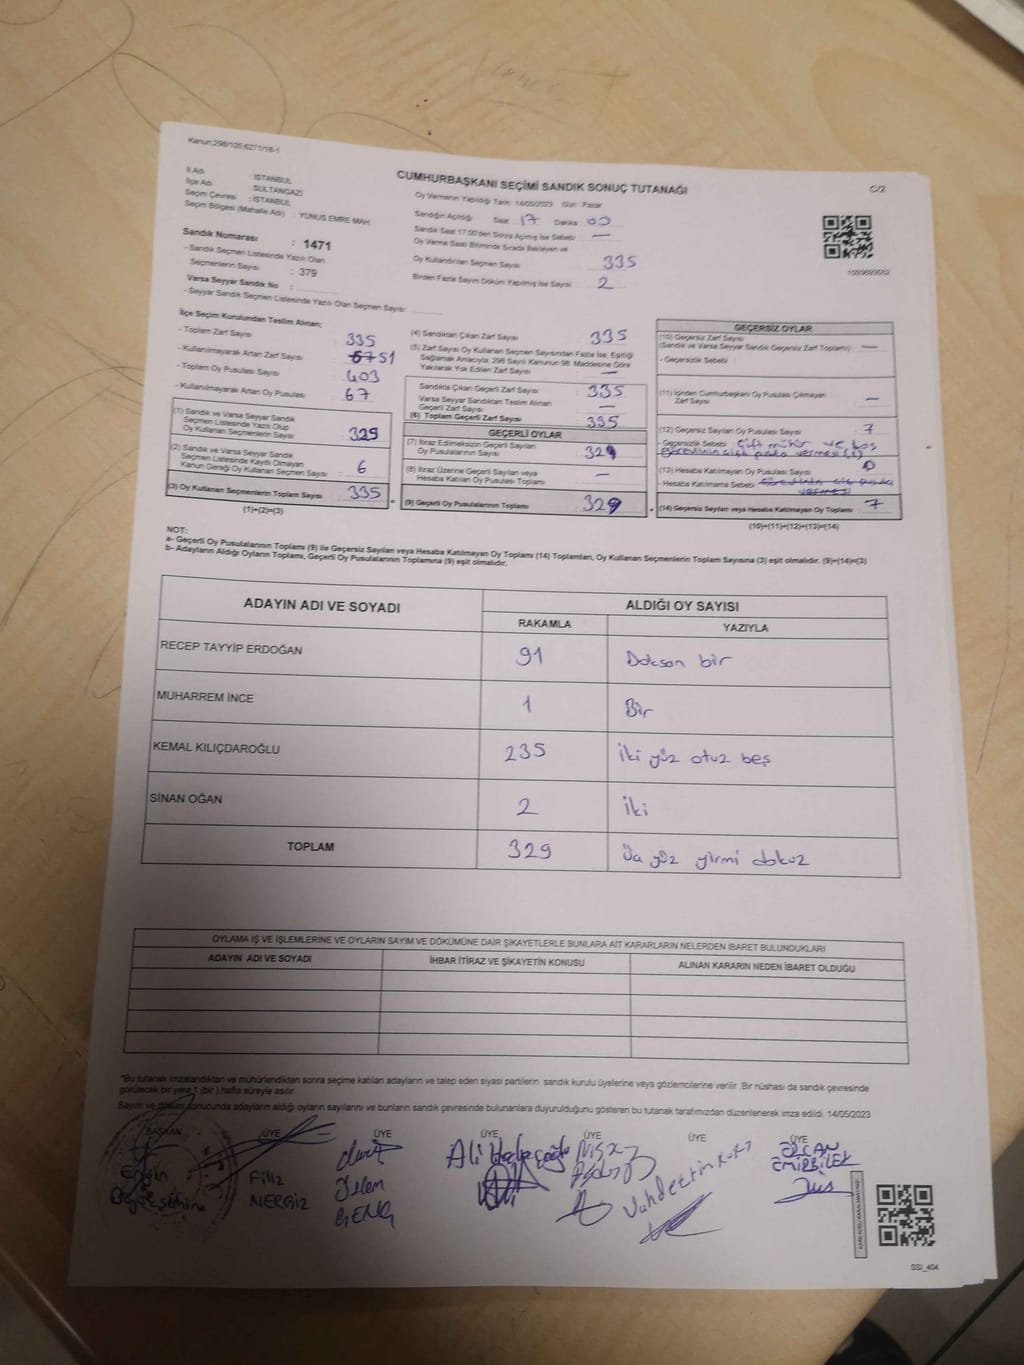 Kanun;298/105;6271/16-1
İl Adı : İSTANBUL
İlçe Adı : SULTANGAZİ
Seçim Çevresi : İSTANBUL
Seçim Bölgesi (Mahalle Adı) : YUNUS EMRE MAH.
Sandık Numarası : 1471
- Sandık Seçmen Listesinde Yazılı Olan
Seçmenlerin Sayısı : 379
Varsa Seyyar Sandık No :
- Seyyar Sandık Seçmen Listesinde Yazılı Olan Seçmen Sayısı :
CUMHURBAŞKANI SEÇİMİ SANDIK SONUÇ TUTANAĞI
C/2
Oy Vermenin Yapıldığı Tarih: 14/05/2023 Gün : Pazar
Sandığın Açıldığı Saat : 17 Dakika : 00
Sandık Saat 17:00'den Sonra Açılmış İse Sebebi : —
Oy Verme Saati Bitiminde Sırada Bekleyen ve
Oy Kullandırılan Seçmen Sayısı 335
Birden Fazla Sayım Döküm Yapılmış İse Sayısı : 2
İlçe Seçim Kurulundan Teslim Alınan;
- Toplam Zarf Sayısı : 335
- Kullanılmayarak Artan Zarf Sayısı : 51
- Toplam Oy Pusulası Sayısı : 403
- Kullanılmayarak Artan Oy Pusulası : 67
(1) Sandık ve Varsa Seyyar Sandık
Seçmen Listesinde Yazılı Olup
Oy Kullanan Seçmenlerin Sayısı : 329
(2) Sandık ve Varsa Seyyar Sandık
Seçmen Listesinde Kayıtlı Olmayan
Kanun Gereği Oy Kullanan Seçmen Sayısı : 6
(3) Oy Kullanan Seçmenlerin Toplam Sayısı : 335
(1)+(2)=(3)
(4) Sandıktan Çıkan Zarf Sayısı : 335
(5) Zarf Sayısı Oy Kullanan Seçmen Sayısından Fazla İse, Eşitliği
Sağlamak Amacıyla; 298 Sayılı Kanunun 98. Maddesine Göre
Yakılarak Yok Edilen Zarf Sayısı : —
Sandıkta Çıkan Geçerli Zarf Sayısı : 335
Varsa Seyyar Sandıktan Teslim Alınan
Geçerli Zarf Sayısı : —
(6) Toplam Geçerli Zarf Sayısı : 335
GEÇERLİ OYLAR
(7) İtiraz Edilmeksizin Geçerli Sayılan
Oy Pusulası Sayısı : 329
(8) İtiraz Üzerine Geçerli Sayılan veya
Hesaba Katılan Oy Pusulası Toplamı : —
(9) Geçerli Oy Pusulalarının Toplamı : 329
GEÇERSİZ OYLAR
(10) Geçersiz Zarf Sayısı
(Sandık ve Varsa Seyyar Sandık Geçersiz Zarf Toplamı) : —
- Geçersizlik Sebebi :
(11) İçinden Cumhurbaşkanı Oy Pusulası Çıkmayan
Zarf Sayısı : —
(12) Geçersiz Sayılan Oy Pusulası Sayısı : 7
- Geçersizlik Sebebi : Çift mühür ve boş
görevlinin çift pusula vermesi (1)
(13) Hesaba Katılmayan Oy Pusulası Sayısı : 0
- Hesaba Katılmama Sebebi :
vermesi
(14) Geçersiz Sayılan veya Hesaba Katılmayan Oy Toplamı : 7
(10)+(11)+(12)+(13)=(14)
NOT:
a- Geçerli Oy Pusulalarının Toplamı (9) ile Geçersiz Sayılan veya Hesaba Katılmayan Oy Toplamı (14) Toplamları, Oy Kullanan Seçmenlerin Toplam Sayısına (3) eşit olmalıdır. (9)+(14)=(3)
b- Adayların Aldığı Oyların Toplamı, Geçerli Oy Pusulalarının Toplamına (9) eşit olmalıdır.
ADAYIN ADI VE SOYADI ALDIĞI OY SAYISI
RAKAMLA YAZIYLA
RECEP TAYYİP ERDOĞAN 91 Doksan bir
MUHARREM İNCE 1 Bir
KEMAL KILIÇDAROĞLU 235 İki yüz otuz beş
SİNAN OĞAN 2 İki
TOPLAM 329 Üç yüz yirmi dokuz
OYLAMA İŞ VE İŞLEMLERİNE VE OYLARIN SAYIM VE DÖKÜMÜNE DAİR ŞİKAYETLERLE BUNLARA AİT KARARLARIN NELERDEN İBARET BULUNDUKLARI
ADAYIN ADI VE SOYADI İHBAR İTİRAZ VE ŞİKAYETİN KONUSU ALINAN KARARIN NEDEN İBARET OLDUĞU
*Bu tutanak imzalandıktan ve mühürlendikten sonra seçime katılan adayların ve talep eden siyasi partilerin sandık kurulu üyelerine veya gözlemcilerine verilir .Bir nüshası da sandık çevresinde
görülecek bir yere 1 (bir ) hafta süreyle asılır
Sayım ve döküm sonucunda adayların aldığı oyların sayılarını ve bunların sandık çevresinde bulunanlara duyurulduğunu gösteren bu tutanak tarafımızdan düzenlenerek imza edildi. 14/05/2023
BAŞKAN ÜYE ÜYE ÜYE ÜYE ÜYE ÜYE
Engin
Filiz
NERGİZ
GENÇ
Ali
Vahdettin Kurt
ÖZCAN
EMİRBİLEK
SSI_404